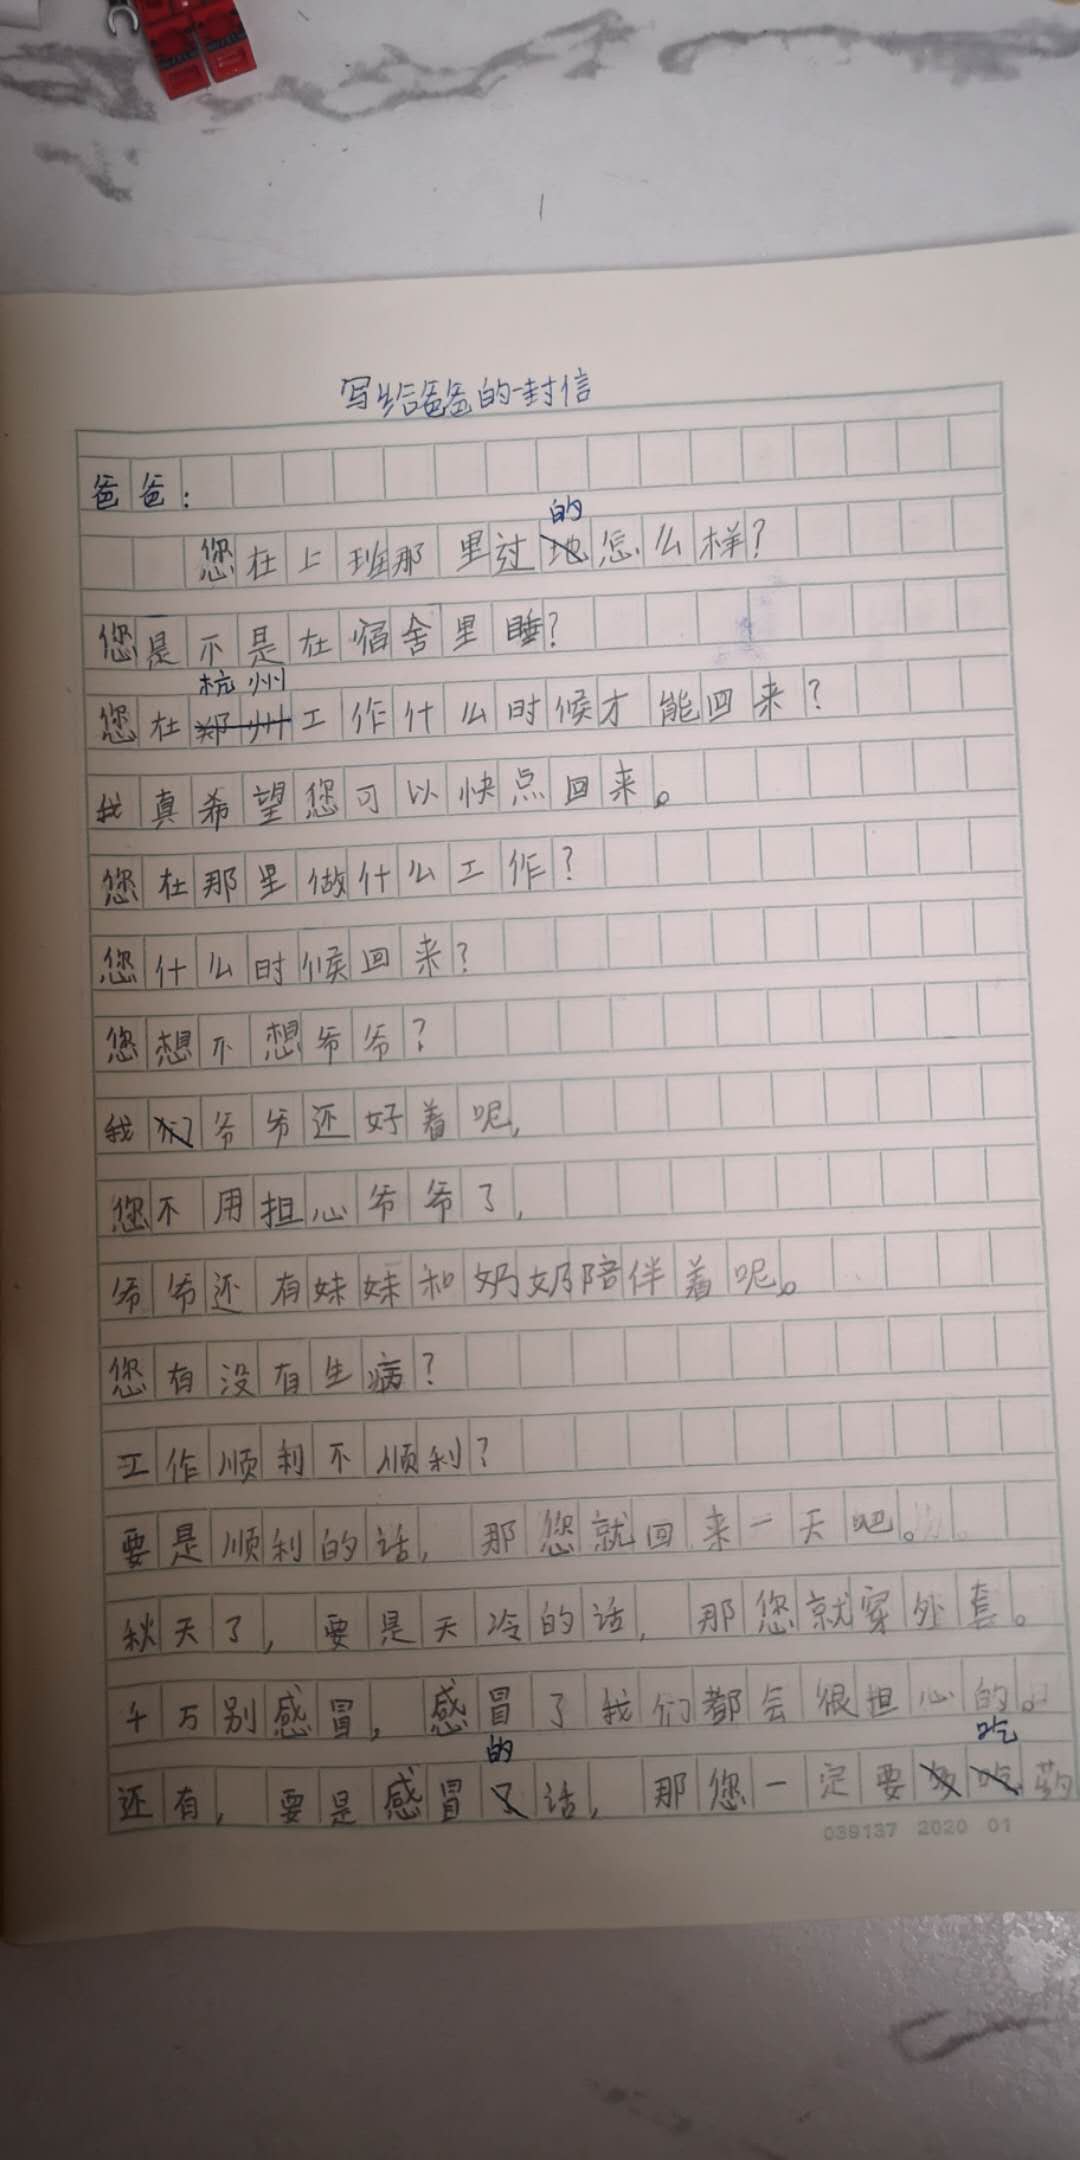 写给爸爸的一封信
爸爸：
您在上班那里过的怎么样？
您是不是在宿舍里睡？
您在杭州工作什么时候才能回来？
我真希望您可以快点回来。
您在那里做什么工作？
您什么时候回来？
您想不想爷爷？
我爷爷还好着呢，
您不用担心爷爷了，
爷爷还有妹妹和奶奶陪伴着呢。
您有没有生病？
工作顺利不顺利？
要是顺利的话，那您就回来一天吧。
秋天了，要是天冷的话，那您就穿外套。
千万别感冒，感冒了我们都会很担心的。
还有，要是感冒的话，那您一定要吃药
039137 2020 01